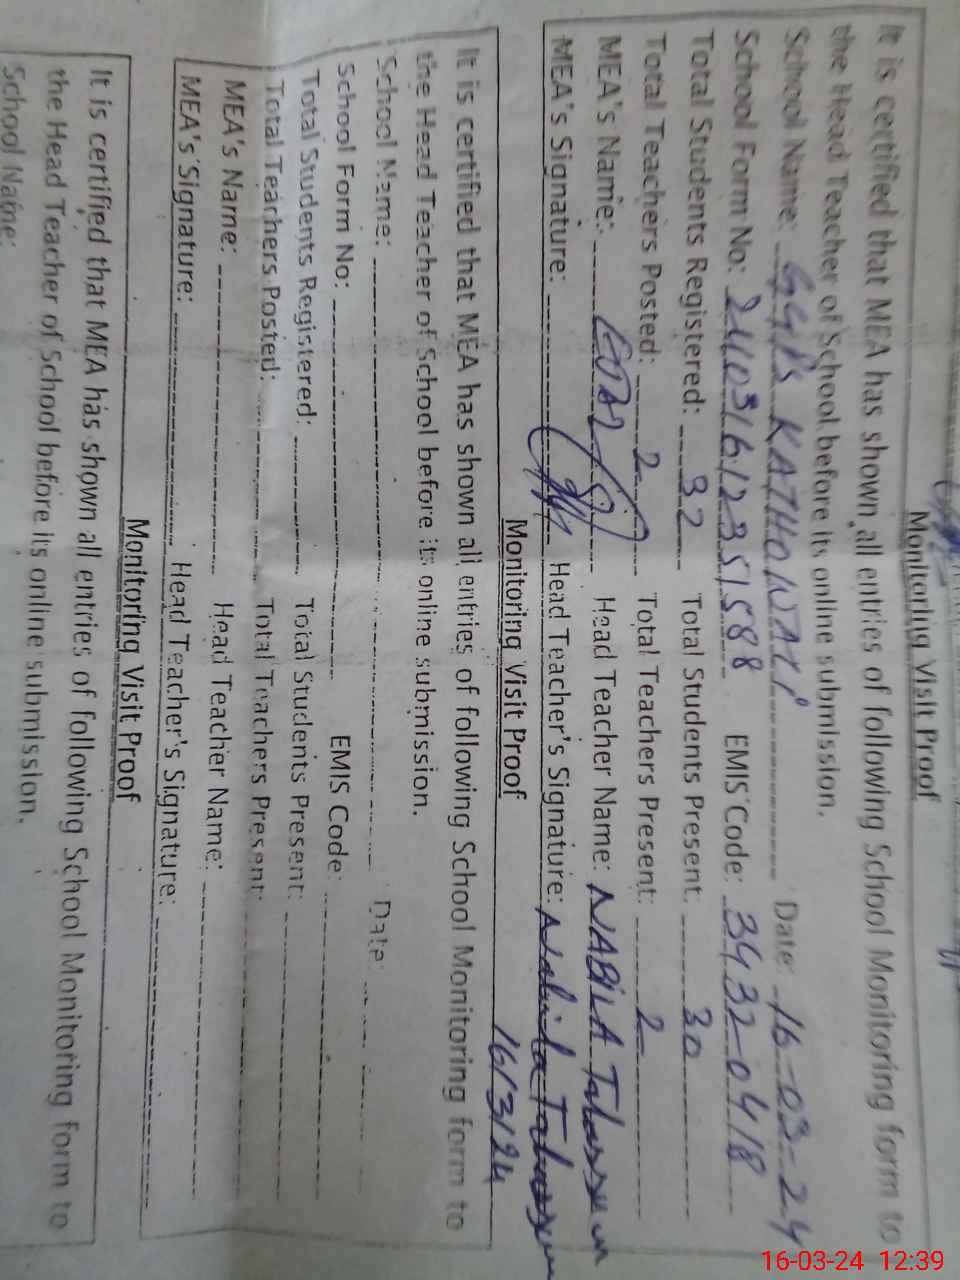 Monitoring Visit Proof
It is certified that MEA has shown all entries of following School Monitoring form to
the Head Teacher of School before its online submission.
School Name: GGPS KATHOWALI Date: 16-03-24
School Form No: EMIS Code: 39320418
Total Students Registered: 32 Total Students Present: 30
Total Teachers Posted: 2 Total Teachers Present: 2
MEA's Name: Head Teacher Name: NABILA Tabassum
MEA's Signature: Head Teacher's Signature: Nabila Tabassum
16/3/24
Monitoring Visit Proof
It is certified that MEA has shown all entries of following School Monitoring form to
the Head Teacher of School before its online submission.
School Name: Date:
School Form No: EMIS Code:
Total Students Registered: Total Students Present:
Total Teachers Posted: Total Teachers Present:
MEA's Name: Head Teacher Name:
MEA's Signature: Head Teacher's Signature:
Monitoring Visit Proof
It is certified that MEA has shown all entries of following School Monitoring form to
the Head Teacher of School before its online submission.
School Name:
16-03-24 12:39